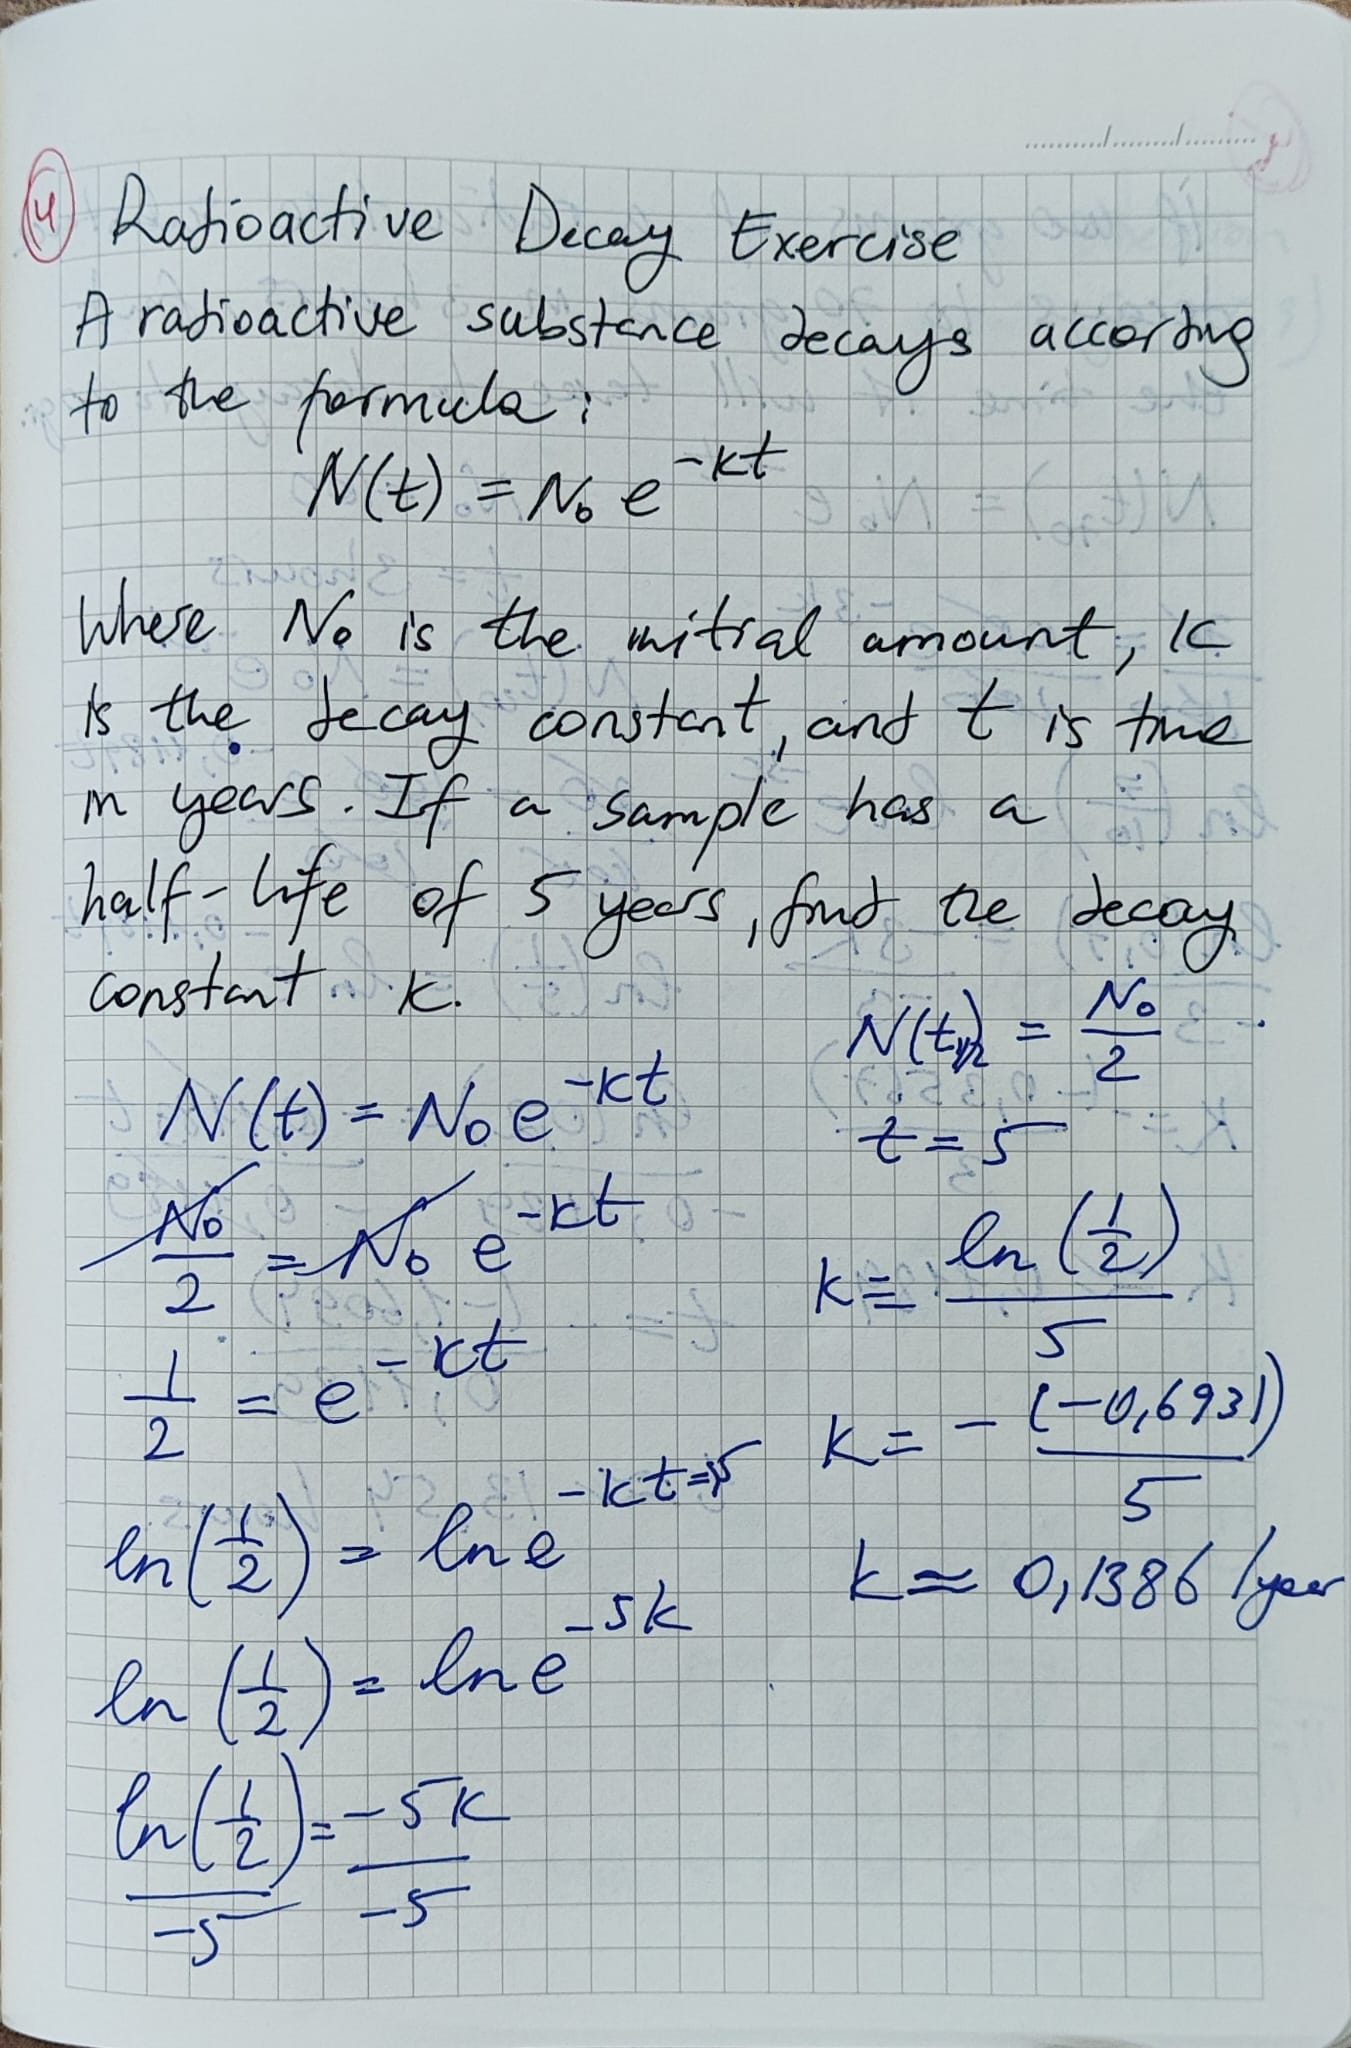 4
Radioactive Decay Exercise
A radioactive substance decays according
to the formula:
N(t) = N₀ e^(-kt)
Where N₀ is the initial amount, k
is the decay constant, and t is time
in years. If a sample has a
half-life of 5 years, find the decay
constant k.
N(t) = N₀ e^(-kt)
N₀/2 = N₀ e^(-kt)
1/2 = e^(-kt)
ln(1/2) = ln e^(-kt=5)
ln(1/2) = ln e^(-5k)
ln(1/2)/-5 = -5k/-5
N(t₁/₂) = N₀/2
t = 5
k = ln(1/2)/5
k = - (-0,6931)/5
k ≈ 0,1386 /year